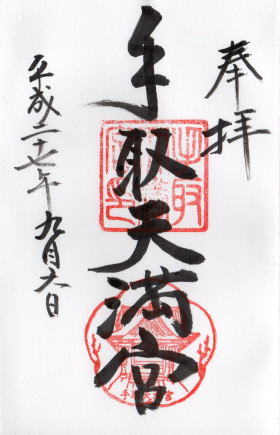 奉拝
手取天満宮
平成二十七年九月六日